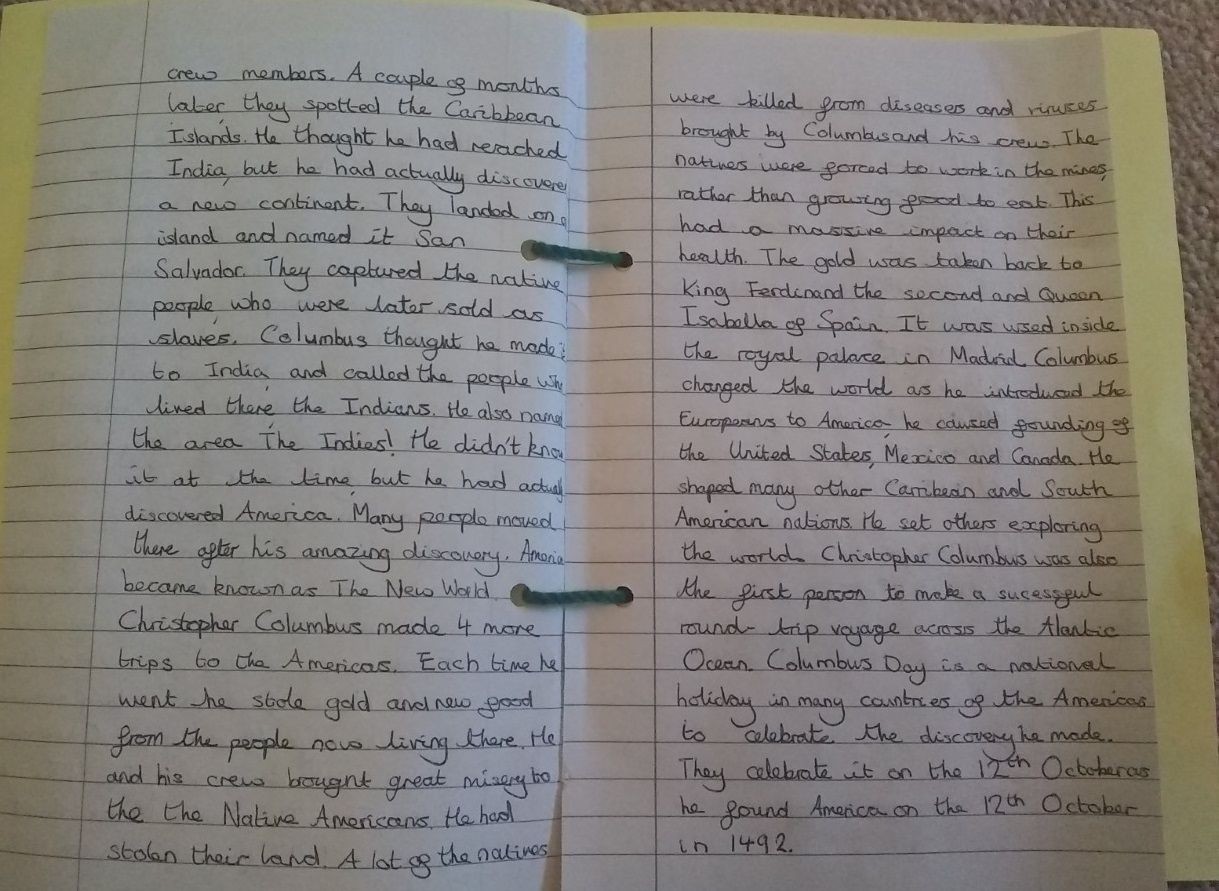 crew members. A couple of months
later, they spotted the Caribbean
Islands. He thought he had reached
India, but he had actually discovere
a new continent. They landed on
island and named it San
Salvador. They captured the native
people, who were later sold as
slaves. Columbus thought he made i
to India, and called the people who
lived there, the Indians. He also named
the area The Indies! He didn't know
it at the time, but he had actually
discovered America. Many people moved
there after his amazing discovery. America
became known as The New World.
Christopher Columbus made 4 more
trips to the Americas. Each time he
went he stole gold and new food
from the people now living there. He
and his crew brought great misery to
the the Native Americans. He had
stolen their land. A lot of the natives
were killed from diseases and viruses
brought by Columbus and his crew. The
natives were forced to work in the mines,
rather than growing food to eat. This
had a massive impact on their
health. The gold was taken back to
King Ferdinand the second and Queen
Isabella of Spain. It was used inside
the royal palace in Madrid. Columbus
changed the world as he introduced the
Europeans to America, he caused founding of
the United States, Mexico and Canada. He
shaped many other Carribean and South
American nations. He set others exploring
the world. Christopher Columbus was also
the first person to make a sucessful
round-trip voyage across the Alantic
Ocean. Columbus Day is a national
holiday in many countries of the Americas
to celebrate the discovery he made.
They celebrate it on the 12th October as
he found America on the 12th October
in 1492.